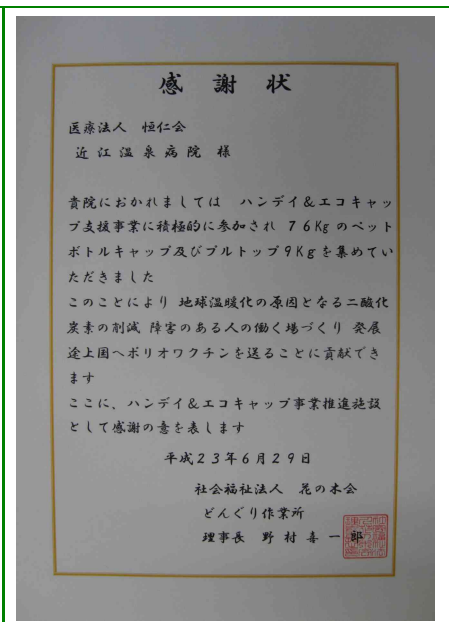 感謝状
医療法人 恒仁会
近江温泉病院 様
貴院におかれましては ハンデイ&エコキャッ
プ支援事業に積極的に参加され 76Kgのペット
ボトルキャップ及びプルトップ9Kgを集めてい
ただきました
このことにより 地球温暖化の原因となる二酸化
炭素の削減 障害のある人の働く場づくり 発展
途上国へポリオワクチンを送ることに貢献でき
ます
ここに、ハンデイ&エコキャップ事業推進施設
として感謝の意を表します
平成23年6月29日
社会福祉法人 花の木会
どんぐり作業所
理事長 野村喜一郎